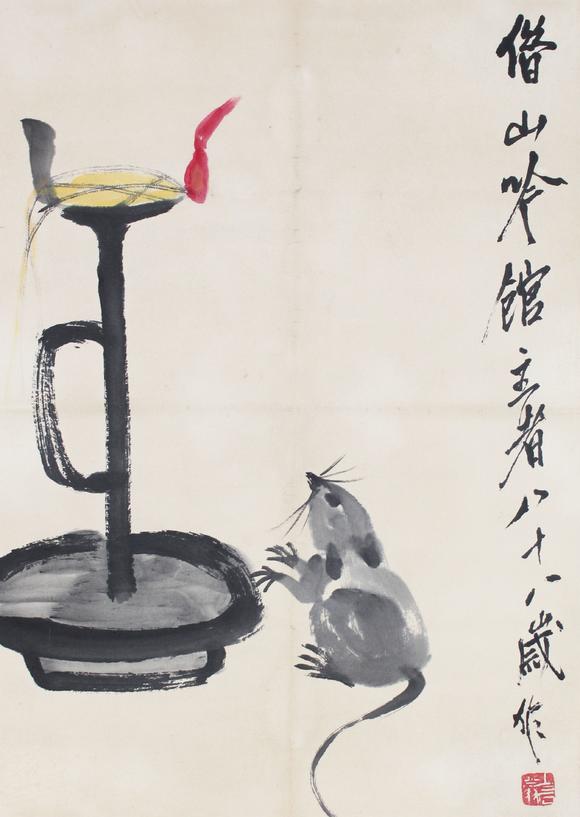 借山吟館主者八十八歲作